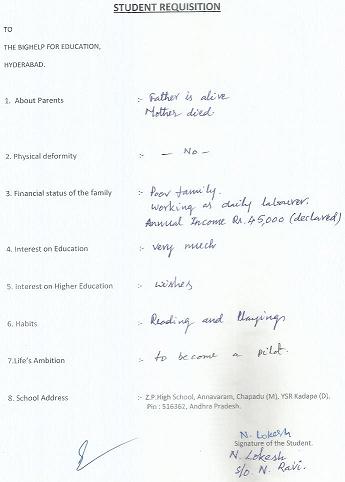 STUDENT REQUISITION
TO
THE BIGHELP FOR EDUCATION,
HYDERABAD.
1. About Parents :- Father is alive
Mother died
2. Physical deformity :- — No —
3. Financial status of the family :- Poor family.
working as daily labourer.
Annual Income Rs. 45,000 (declared)
4. Interest on Education :- very much
5. Interest on Higher Education :- wishes
6. Habits :- Reading and Playings
7.Life's Ambition :- to become a pilot.
8. School Address :- Z.P.High School, Annavaram, Chapadu (M), YSR Kadapa (D),
Pin : 516362, Andhra Pradesh.
N. Lokesh
Signature of the Student.
N. Lokesh
S/o. N. Ravi.